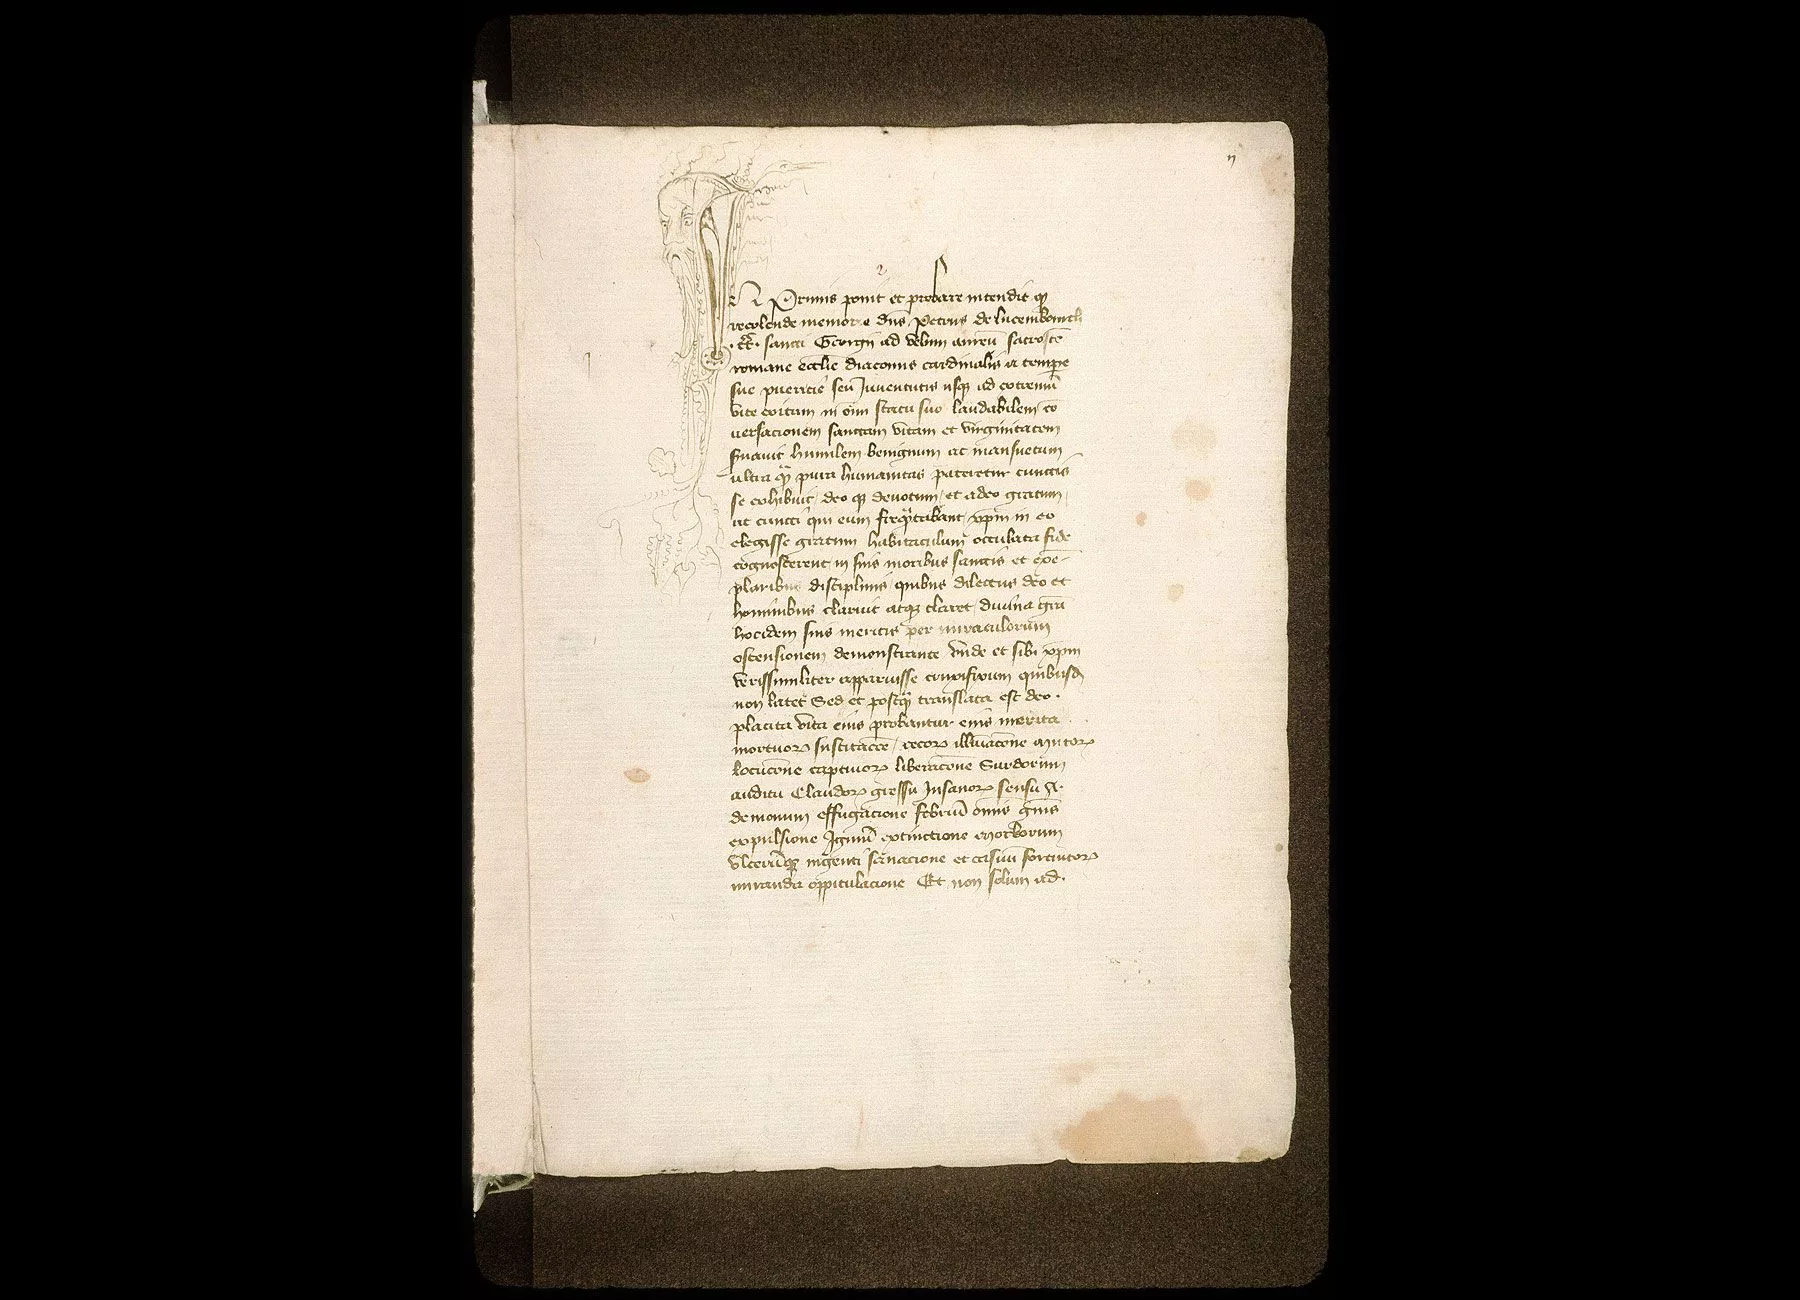 n
In Primis ponit et probare intendit qͥ
recolende memorie dn̄s Petrus de lucemburch
sancti Georgii ad velum aureū sacrosc̄te
romane eccl̄ie diaconus cardinalis a tempore
sue puericie seu Juventutis usq ad extremū
vite exitum in oīm statu suo laudabilem cō
uersacionem sanctam vitam et virginitatem
seruauit humilem benignum ac mansuetum
ultra q̄ pura humanitas pateretur cunctis
se exhibuit deo qꝫ deuotum et adeo gratum
ut cuncti qui eum xp̄m in eo
elegisse gratum habitaculum occulata fide
cognoscerent in suis moribus sanctis et exē-
plaribus disciplinis quibus dilectus deo et
hominibus claruit atqꝫ claret diuina grā
hocidem suis meritis per miraculorum
ostensionem demonstrante vnde et sibi xp̄m
verissimiliter apparuisse crucifixum quibusdā
non latet Sed et postq̄ translata est deo
placita vita eius probantur eius merita
mortuoꝝ suscitacōe cecoꝝ illūiacōne mutoꝝ
locucōne captiuoꝝ liberacōne Surdorum
auditu Claudoꝝ gressu Insanoꝝ sensu
demonum effugacione febriū om̄is gn̄is
expulsione Igniū extinctione morborum
vlcerūqꝫ ingenti sanacione et casuū fortuitoꝝ
miranda oppitulacione Et non solum ad